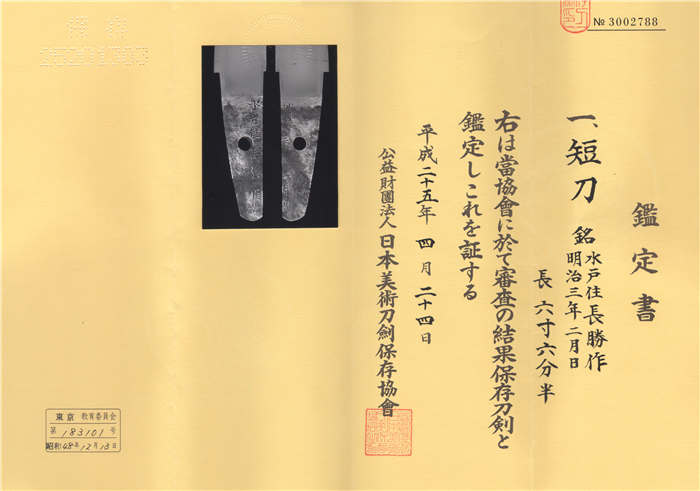 № 3002788
鑑定書
一、短刀 銘 水戸住長勝作
明治三年二月日
長 六寸六分半
右は當協會に於て審査の結果保存刀剣と
鑑定しこれを証する
平成二十五年 四月 二十四日
公益財團法人 日本美術刀劍保存協會
東京 教育委員会
第 183101 号
昭和48年12月13日